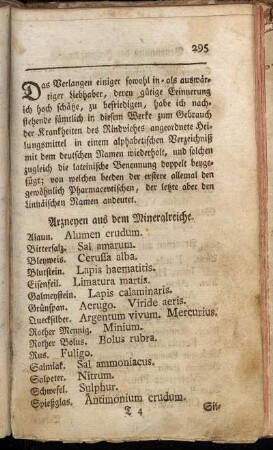 295
Das Verlangen einiger sowohl in- als auswär-
tiger Liebhaber, deren gütige Erinnerung
ich hoch schätze, zu befriedigen, habe ich nach-
stehende sämtlich in diesem Werke zum Gebrauch
der Krankheiten des Rindviehes angeordnete Hei-
lungsmittel in einem alphabetischen Verzeichniß
mit dem deutschen Namen wiederholt, und solchen
zugleich die lateinische Benennung doppelt beyge-
fügt; von welchen beeden der erstere allemal den
gewöhnlich Pharmacevtischen, der letzte aber den
Linnäischen Namen andeutet.
Arzneyen aus dem Mineralreiche.
Alaun. Alumen crudum.
Bittersalz. Sal amarum.
Bleyweis. Cerussa alba.
Blutstein. Lapis haematitis.
Eisenfeil. Limatura martis.
Galmeystein. Lapis calaminaris.
Grünspan. Aerugo. Viride aeris.
Quecksilber. Argentum vivum. Mercurius.
Rother Mennig. Minium.
Rother Bolus. Bolus rubra.
Rus. Fuligo.
Salmiak. Sal ammoniacus.
Salpeter. Nitrum.
Schwefel. Sulphur.
Spießglas. Antimonium crudum.
T 4 Sil-